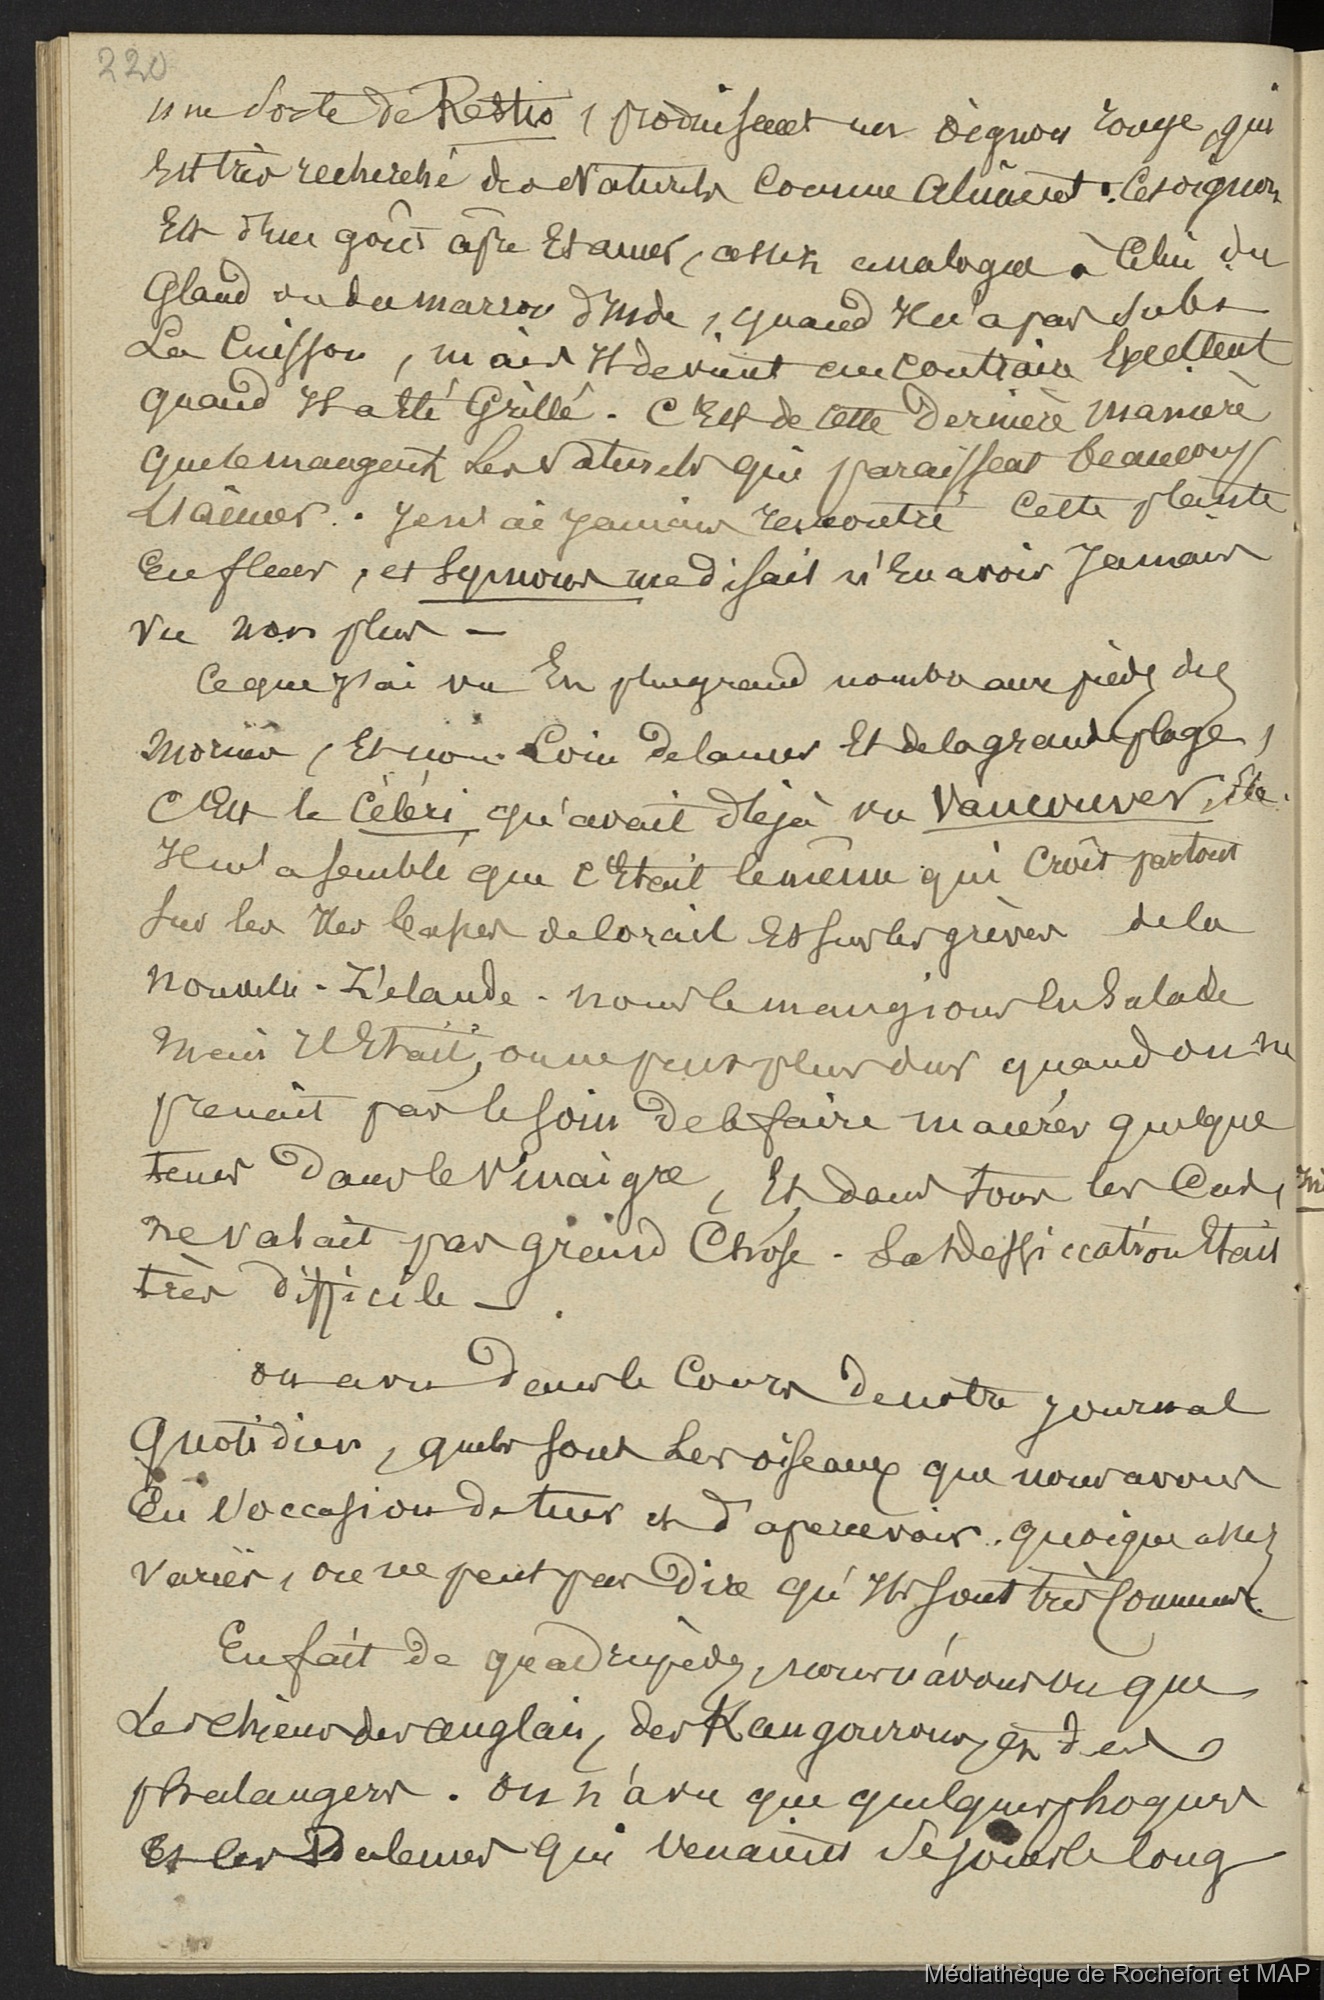 220
une sorte de Restio, produisent un oignon rouge, qui
Est très recherché des Naturels Comme Aliment. Cet oignon
Est d'un goût âpre Et amer, assez analogue à Celui du
Gland ou du marron d'Inde, quand Il n'a pas subi
La Cuisson, mais Il devient au contraire Excellent
quand Il a Eté Grillé. C'Est de cette dernière manière
que le mangent Les Naturels qui paraissent beaucoup
L'aimer. Je n'ai jamais rencontré Cette plante
En fleur, et Symour me disait n'En avoir Jamais
vu non plus —
Ce que J'ai vu En plus grand nombre aux pieds des
Mornes, Et non Loin de la mer Et de la grande plage,
C'Est le Céleri qu'avait déjà vu Vancouver, Etc.
Il m'a semblé que C'Etait le même qui Croît partout
sur les Iles basses de Corail Et sur les grèves de la
Nouvelle-Zélande. Nous le mangions En Salade
Mais Il Etait on ne peut plus dur quand on ne
prenait pas le soin de le faire macérer quelque
tems dans le Vinaigre, Et dans tous les Cas,
ne valait pas grand Chose. La Dessiccation Etait
très difficile —
On a vu dans le Cours de notre Journal
Quotidien, quels sont Les oiseaux que nous avons
Eu l'occasion de tuer et d'apercevoir. Quoique assez
variés, on ne peut pas dire qu'Ils sont très Communs.
En fait de quadrupèdes, nous n'avons vu que
Les chiens des anglais, des Kangourous, et des
phalangers. On n'a vu que quelques phoques
Et les Baleines qui venaient se jouer le long
Médiathèque de Rochefort et MAP